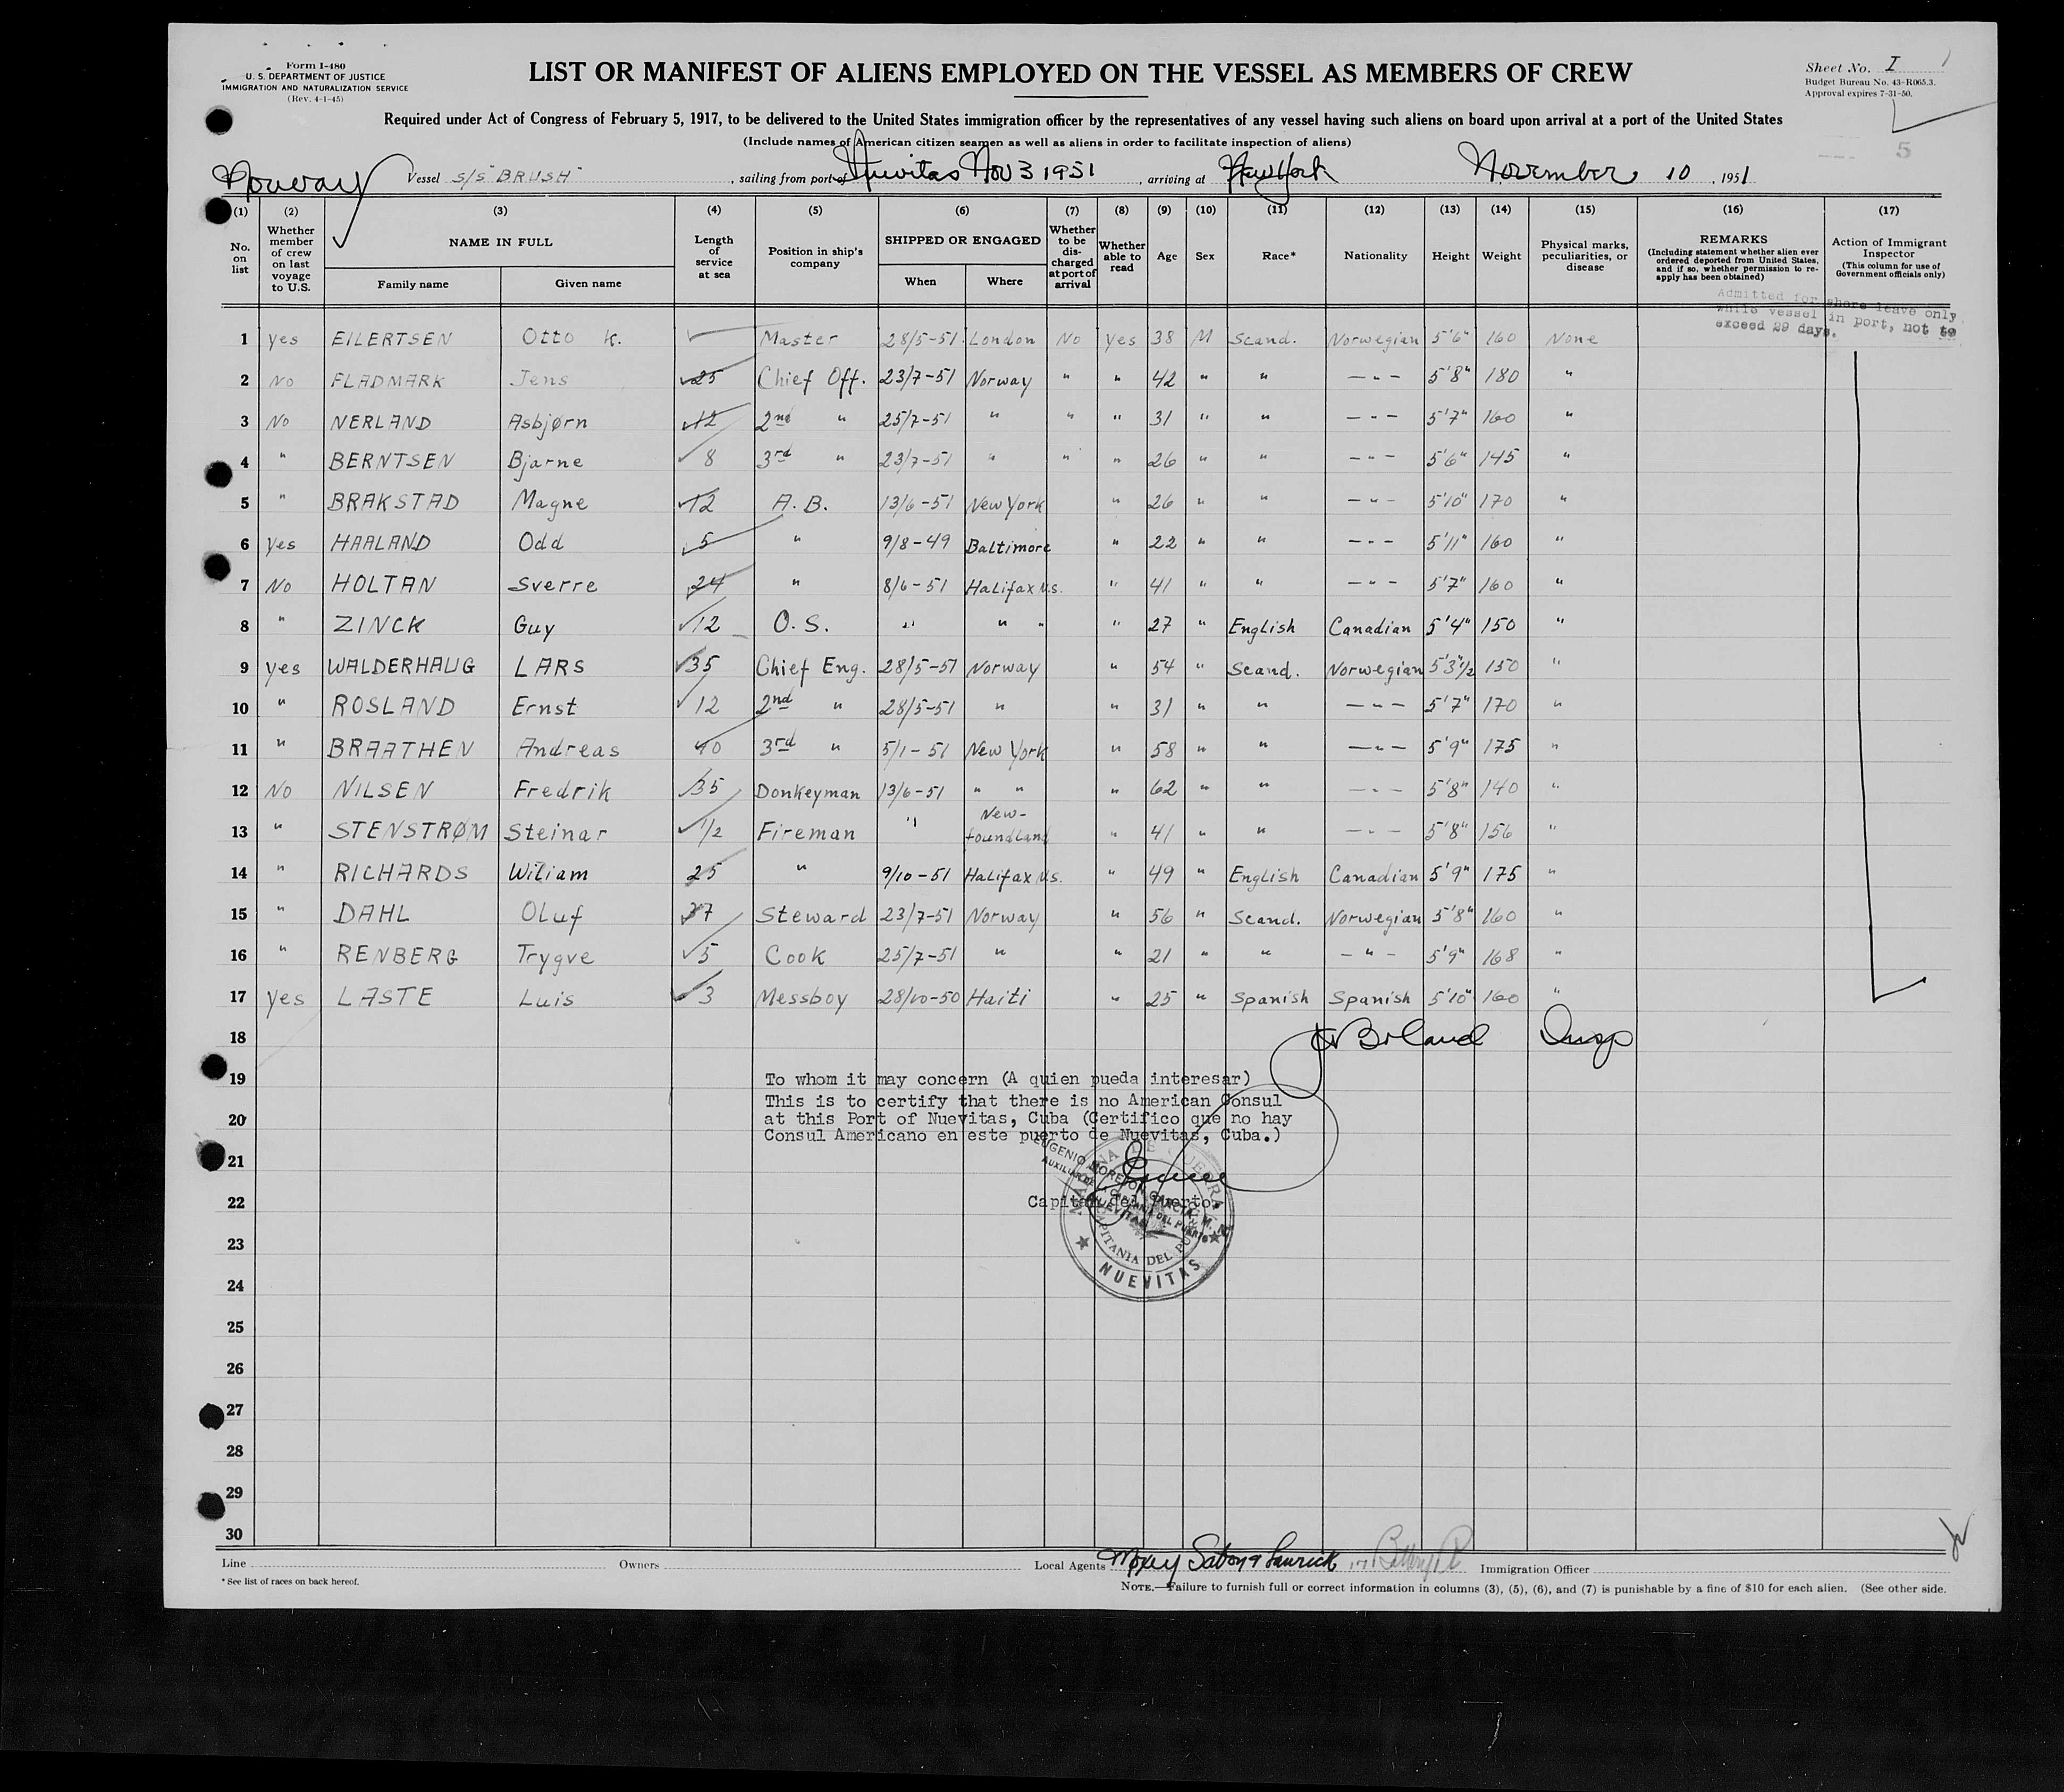 Form I-480
U. S. DEPARTMENT OF JUSTICE
IMMIGRATION AND NATURALIZATION SERVICE
(Rev. 4-1-45)
LIST OR MANIFEST OF ALIENS EMPLOYED ON THE VESSEL AS MEMBERS OF CREW
Sheet No. I
Budget Bureau No. 43-R065.3.
Approval expires 7-31-50.
Required under Act of Congress of February 5, 1917, to be delivered to the United States immigration officer by the representatives of any vessel having such aliens on board upon arrival at a port of the United States
(Include names of American citizen seamen as well as aliens in order to facilitate inspection of aliens)
5
Norway Vessel S/S "BRUSH", sailing from port of Nuevitas Nov 3 1951, arriving at New York November 10, 1951
(1) (2) (3) (4) (5) (6) (7) (8) (9) (10) (11) (12) (13) (14) (15) (16) (17)
No. on list
Whether member of crew on last voyage to U.S.
NAME IN FULL
Family name Given name
Length of service at sea
Position in ship's company
SHIPPED OR ENGAGED
When Where
Whether to be discharged at port of arrival
Whether able to read
Age Sex Race* Nationality Height Weight
Physical marks, peculiarities, or disease
REMARKS
(Including statement whether alien ever ordered deported from United States, and if so, whether permission to reapply has been obtained)
Action of Immigrant Inspector
(This column for use of Government officials only)
Admitted for shore leave only
while vessel in port, not to
exceed 29 days.
1 Yes EILERTSEN Otto K. Master 28/5-51 London No Yes 38 M Scand. Norwegian 5'6" 160 None
2 No FLADMARK Jens 25 Chief Off. 23/7-51 Norway " " 42 " " —"— 5'8" 180 "
3 No NERLAND Asbjørn 12 2nd " 25/7-51 " " " 31 " " —"— 5'7" 160 "
4 " BERNTSEN Bjarne 8 3rd " 23/7-51 " " " 26 " " —"— 5'6" 145 "
5 " BRAKSTAD Magne 12 A.B. 13/6-51 New York " 26 " " —"— 5'10" 170 "
6 Yes HAALAND Odd 5 " 9/8-49 Baltimore " 22 " " —"— 5'11" 160 "
7 No HOLTAN Sverre 24 " 8/6-51 Halifax N.S. " 41 " " —"— 5'7" 160 "
8 " ZINCK Guy 12 O.S. " " " " 27 " English Canadian 5'4" 150 "
9 Yes WALDERHAUG LARS 35 Chief Eng. 28/5-51 Norway " 54 " Scand. Norwegian 5'3"1/2 150 "
10 " ROSLAND Ernst 12 2nd " 28/5-51 " " 31 " " —"— 5'7" 170 "
11 " BRAATHEN Andreas 40 3rd " 5/1-51 New York " 58 " " —"— 5'9" 175 "
12 No NILSEN Fredrik 35 Donkeyman 13/6-51 " " " 62 " " —"— 5'8" 140 "
13 " STENSTRØM Steinar 1/2 Fireman " New-foundland " 41 " " —"— 5'8" 156 "
14 " RICHARDS Wiliam 25 " 9/10-51 Halifax N.S. " 49 " English Canadian 5'9" 175 "
15 " DAHL Oluf 37 Steward 23/7-51 Norway " 56 " Scand. Norwegian 5'8" 160 "
16 " RENBERG Trygve 5 Cook 25/7-51 " " 21 " " —"— 5'9" 168 "
17 Yes LASTE Luis 3 Messboy 28/10-50 Haiti " 25 " Spanish Spanish 5'10" 160 "
18 Insp
19 To whom it may concern (A quien pueda interesar)
This is to certify that there is no American Consul
20 at this Port of Nuevitas, Cuba (Certifico que no hay
Consul Americano en este puerto de Nuevitas, Cuba.)
21
22 Capitan del Puerto.
MARINA DE GUERRA
CAPITANIA DEL PUERTO
NUEVITAS
23
24
25
26
27
28
29
30
Line Owners Local Agents Immigration Officer
* See list of races on back hereof.
NOTE.—Failure to furnish full or correct information in columns (3), (5), (6), and (7) is punishable by a fine of $10 for each alien. (See other side.